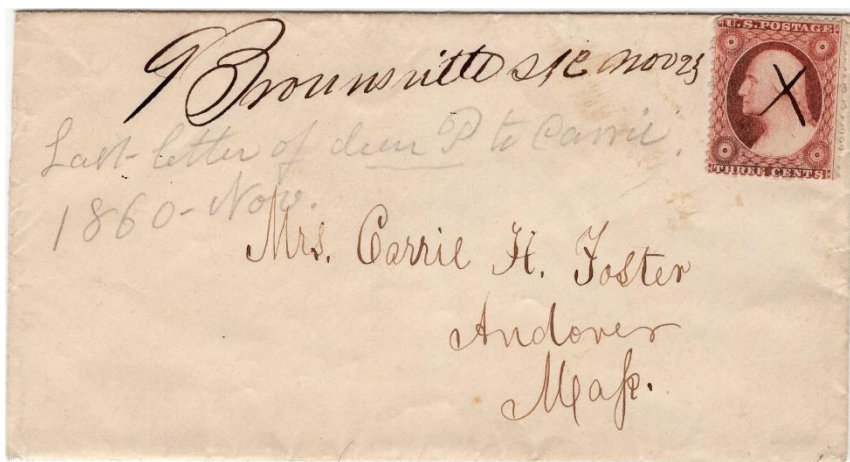 Brownsville S C Nov 23
U.S. POSTAGE
THREE CENTS
Last letter of dear P to Carrie.
1860 - Nov.
Mrs. Carrie H. Foster
Andover
Maſs.